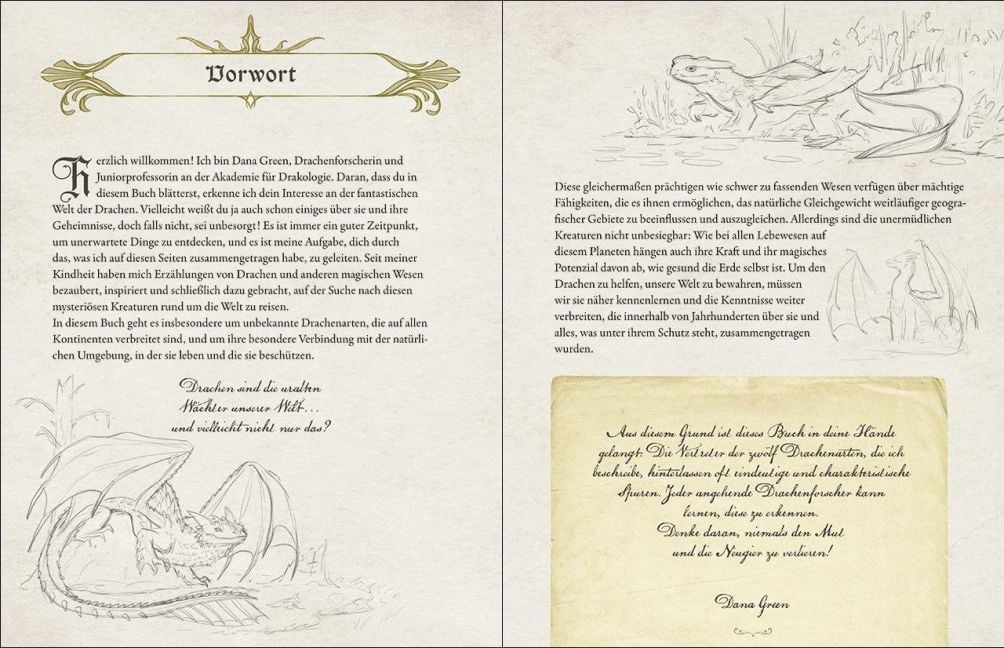 Vorwort
Herzlich willkommen! Ich bin Dana Green, Drachenforscherin und
Juniorprofessorin an der Akademie für Drakologie. Daran, dass du in
diesem Buch blätterst, erkenne ich dein Interesse an der fantastischen
Welt der Drachen. Vielleicht weißt du ja auch schon einiges über sie und ihre
Geheimnisse, doch falls nicht, sei unbesorgt! Es ist immer ein guter Zeitpunkt,
um unerwartete Dinge zu entdecken, und es ist meine Aufgabe, dich durch
das, was ich auf diesen Seiten zusammengetragen habe, zu geleiten. Seit meiner
Kindheit haben mich Erzählungen von Drachen und anderen magischen Wesen
bezaubert, inspiriert und schließlich dazu gebracht, auf der Suche nach diesen
mysteriösen Kreaturen rund um die Welt zu reisen.
In diesem Buch geht es insbesondere um unbekannte Drachenarten, die auf allen
Kontinenten verbreitet sind, und um ihre besondere Verbindung mit der natürli-
chen Umgebung, in der sie leben und die sie beschützen.
Drachen sind die uralten
Wächter unserer Welt...
und vielleicht nicht nur das?
Diese gleichermaßen prächtigen wie schwer zu fassenden Wesen verfügen über mächtige
Fähigkeiten, die es ihnen ermöglichen, das natürliche Gleichgewicht weitläufiger geogra-
fischer Gebiete zu beeinflussen und auszugleichen. Allerdings sind die unermüdlichen
Kreaturen nicht unbesiegbar: Wie bei allen Lebewesen auf
diesem Planeten hängen auch ihre Kraft und ihr magisches
Potenzial davon ab, wie gesund die Erde selbst ist. Um den
Drachen zu helfen, unsere Welt zu bewahren, müssen
wir sie näher kennenlernen und die Kenntnisse weiter
verbreiten, die innerhalb von Jahrhunderten über sie und
alles, was unter ihrem Schutz steht, zusammengetragen
wurden.
Aus diesem Grund ist dieses Buch in deine Hände
gelangt: Die Vertreter der zwölf Drachenarten, die ich
beschreibe, hinterlassen oft eindeutige und charakteristische
Spuren. Jeder angehende Drachenforscher kann
lernen, diese zu erkennen.
Denke daran, niemals den Mut
und die Neugier zu verlieren!
Dana Green